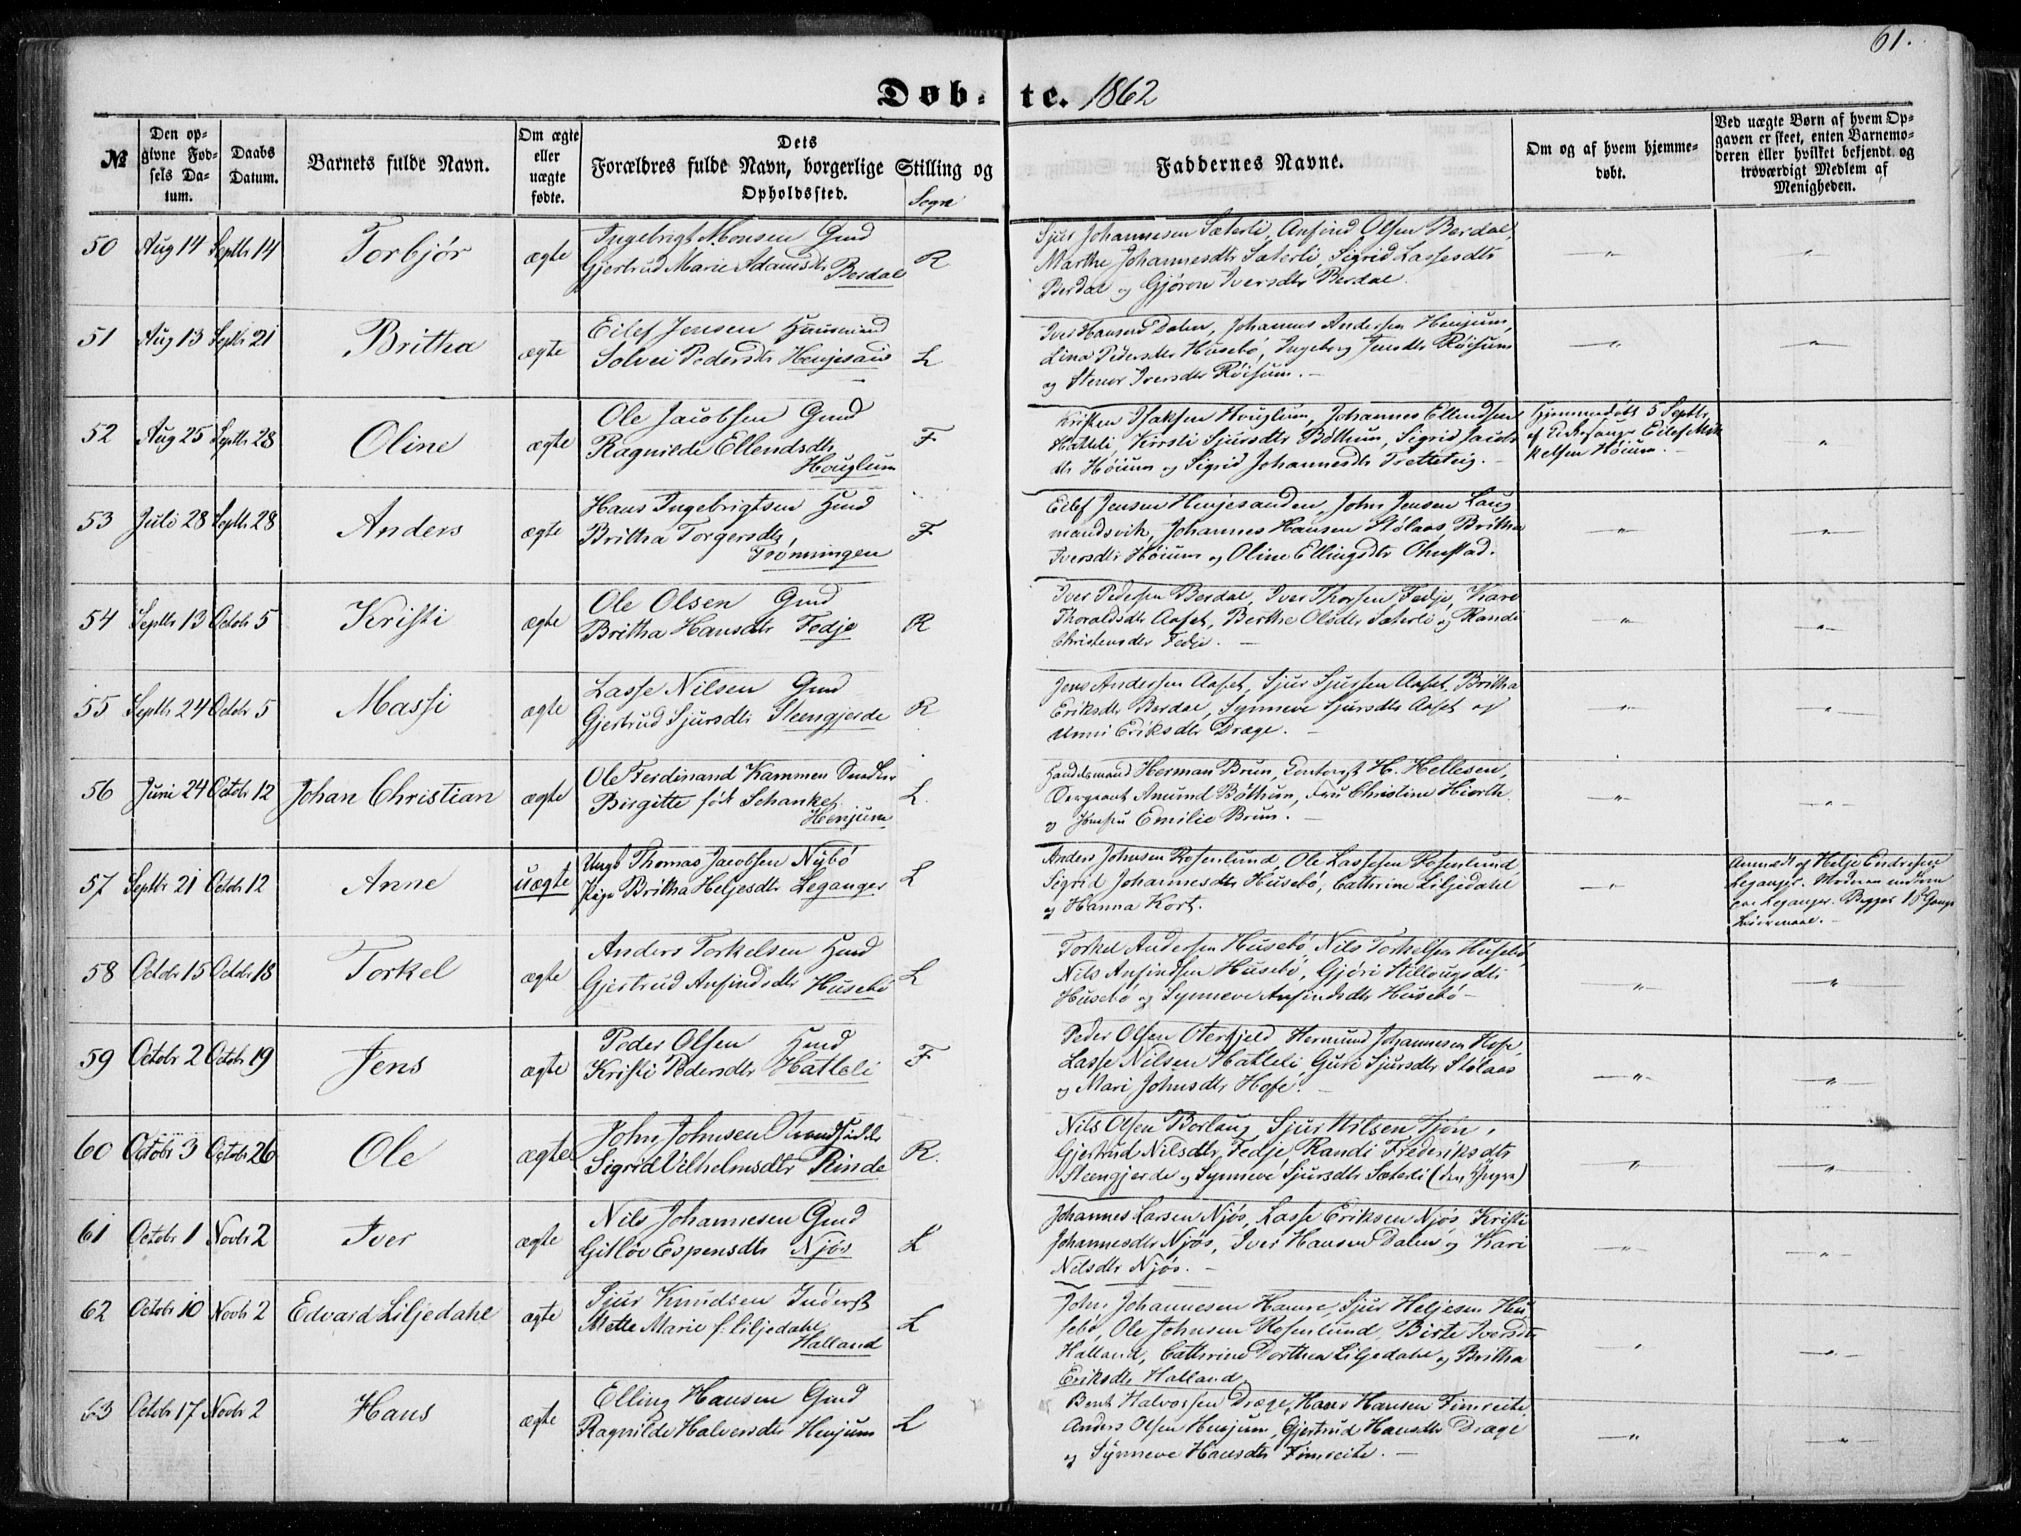 61.
Døb-te. 1862
№
Den op-
givne Fød-
sels Da-
tum.
Daabs
Datum.
Barnets fulde Navn.
Om ægte
eller
uægte
fødte.
Dets
Forældres fulde Navn, borgerlige Stilling og
Opholdssted.
Sogn
Faddernes Navne.
Om og af hvem hjemme-
døbt.
Ved uægte Børn af hvem Op-
gaven er skeet, enten Barnemo-
deren eller hvilket bekjendt og
troværdigt Medlem af
Menigheden.
50 Aug 14 Septbr 14 Torbjør ægte
Ingebrigt Monsen Gmd
Gjertrud Marie Adamsdtr Berdal R
Sjur Johannesen Sæterli, Anfind Olsen Berdal,
Marthe Johannesdtr Sæterli, Sigrid Lassesdtr
Berdal og Gjøron Iversdtr Berdal.
51 Aug 13 Septbr 21 Britha ægte
Eilef Jensen Huusmand
Solvei Pedersdtr Henjesand L
Iver Hansen Dalen, Johannes Andersen Henjum,
Lina Pedersdtr Husebø, Ingeborg Jensdtr Røisum
og Stenor Iversdtr Røisum.
52 Aug 25 Septbr 28 Oline ægte
Ole Jacobsen Gmd
Ragnilde Ellendsdtr
Houglum F
Kristen Isaksen Houglum, Johannes Ellendsen
Hatleli, Kirsti Sjursdtr Bøthun, Sigrid Jacobs
dtr Høium og Sigrid Johannesdtr Tretteteig.
Hjemmedøbt 5 Septbr
af Kirkesanger Eilef Mik
kelsen Høium.
53 Juli 28 Septbr 28 Anders ægte
Hans Ingebrigtsen Hmd
Britha Torgersdtr,
Frønningen F
Eilef Jensen Henjesanden, John Jensen Laug
mandsvik, Johannes Hansen Stølaas, Britha
Iversdtr Høium og Oline Ellingsdtr Ohnstad.
54 Septbr 13 Octobr 5 Kristi ægte
Ole Olsen Gmd
Britha Hansdtr Fedje R
Iver Pedersen Berdal, Iver Thorsen Fedje, Kari
Thoraldsdtr Aaset, Berthe Olsdtr Sæterli og Randi
Christensdtr Fedje.
55 Septbr 24 Octobr 5 Massi ægte
Lasse Nilsen Gmd
Gjertrud Sjursdtr Steengjerde R
Jens Andersen Aaset, Sjur Sjursen Aaset, Britha
Eriksdtr Berdal, Synneve Sjursdtr Aaset og
Unni Eriksdtr Drage.
56 Juni 24 Octobr 12 Johan Christian ægte
Ole Ferdinand Kammen Snedker
Birgitte født Schanke,
Henjum L.
Handelsmand Herman Brun, Contorist H. Hellesen,
Sergeant Amund Bøthun, Fru Christine Hiorth
og Jomfru Emilie Brun.
57 Septbr 21 Octobr 12 Anne uægte
Ungk Thomas Jacobsen Nybø
Pige Britha Heljesdtr Leganger L
Anders Johnsen Rosenlund, Ole Lassesen Rosenlund,
Sigrid Johannesdtr Husebø, Cathrine Liljedahl
og Hanna Kort.
Anmeldt af Helje Endresen
Leganger. Moderen
Leganger. Begges 1ste Gangs
Leiermaal.
58 Octobr 15 Octobr 18 Torkel ægte
Anders Torkelsen Hmd
Gjertrud Anfindsdtr Husebø L
Torkel Andersen Husebø, Nils Torkelsen Husebø,
Nils Anfindsen Husebø, Gjøri Hillougsdtr
Husebø og Synneve Anfindsdtr Husebø
59 Octobr 2 Octobr 19 Jens ægte
Peder Olsen Hmd
Kristi Pedersdtr Hatleli F
Peder Olsen Oterhjeld, Hermund Johannesen Hofe,
Lasse Nilsen Hatleli, Guri Sjursdtr Stølaas
og Mari Johnsdtr Hofe.
60 Octobr 3 Octobr 26 Ole ægte
John Johnsen Strandsidder
Sigrid Vilhelmsdtr Rinde R.
Nils Olsen Borlaug, Sjur Nilsen Tjøn,
Gjertrud Nilsdtr Fedje, Randi Frederiksdtr
Steengjerde og Synneve Sjursdtr Sæterli (den Yngre)
61 Octobr 1 Novbr 2 Iver ægte
Nils Johannesen Gmd
Gitløv Espensdtr Njøs L
Johannes Larsen Njøs, Lasse Eriksen Njøs, Kristi
Johannesdtr Njøs, Iver Hansen Dalen og Kari
Nilsdtr Njøs.
62 Octobr 10 Novbr 2 Edvard Liljedahl ægte
Sjur Knudsen Inderst
Mette Marie f: Liljedahl
Halland L
John Johannesen Hamre, Sjur Heljesen Hu
sebø, Ole Johnsen Rosenlund, Birte Iversdtr
Halland, Cathrine Dorthea Liljedahl og Britha
Eriksdtr Halland.
63 Octobr 17 Novbr 2 Hans ægte
Elling Hansen Gmd
Ragnilde Halvorsdtr Henjum L
Bent Halvorsen Drage, Hans Hansen Fimreite,
Anders Olsen Henjum, Gjertrud Hansdtr Drage
og Synneve Hansdtr Fimreite.